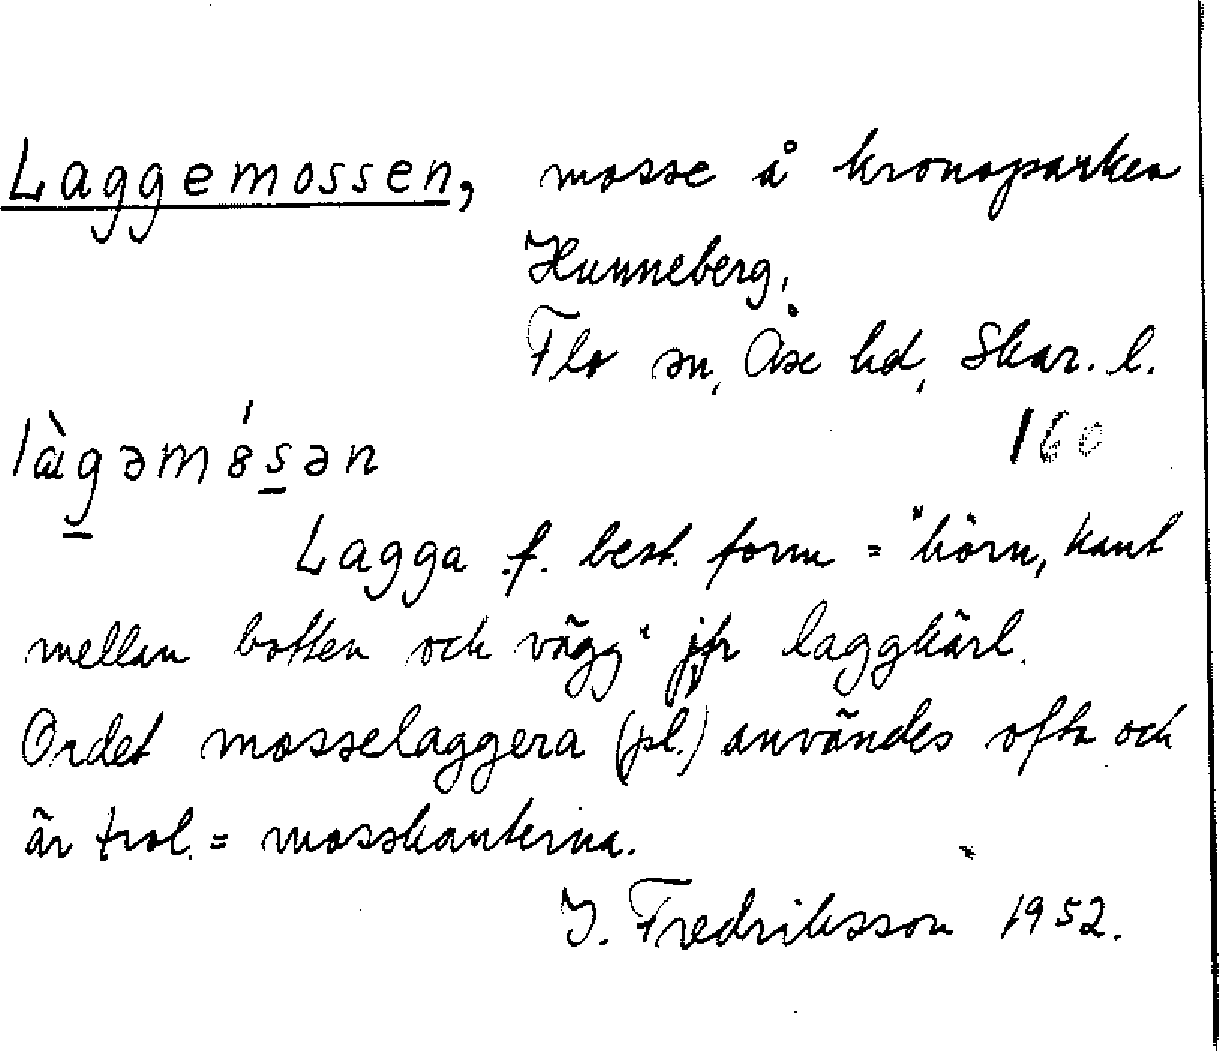 Laggemossen, mosse å kronoparken
Hunneberg,
Flo sn, Åse hd, Skar. l.
160
làgəmósən
Lagga f. best. form = "hörn, kant
mellan botten och vägg" jfr laggkärl.
Ordet mosselaggera (pl.) användes ofta och
är trol. = mosskanterna.
J. Fredriksson 1952.